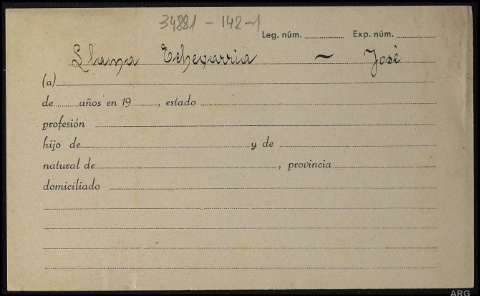 34881 - 142-1
Leg. núm. Exp. núm.
Llana Echegarria ~ José
(a)
de años en 19 , estado
profesión
hijo de y de
natural de , provincia
domiciliado
ARG